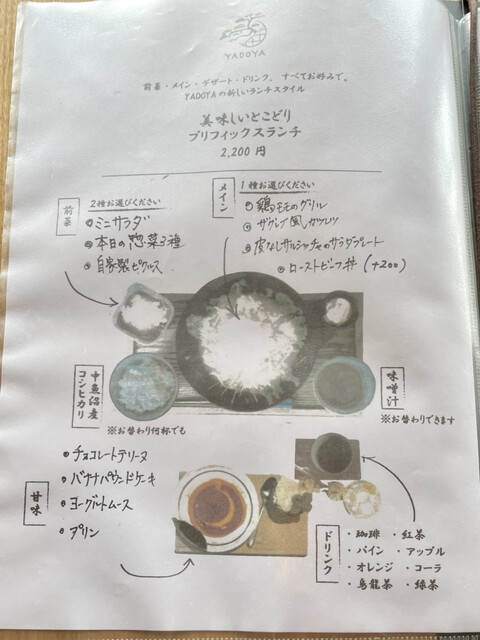 YADOYA
前菜・メイン・デザート・ドリンク、すべてお好みで。
YADOYAの新しいランチスタイル
美味しいとこどり
プリフィックスランチ
2,200 円
前菜
2種お選びください
ミニサラダ
本日の惣菜3種
自家製ピクルス
メイン
1種お選びください
鶏モモのグリル
ザグレブ風カツレツ
皮なしサルシッチャのサラダプレート
ローストビーフ丼 (+200)
中魚沼産
コシヒカリ
※お替わり何杯でも
味噌汁
※お替わりできます
甘味
チョコレートテリーヌ
バナナパウンドケーキ
ヨーグルトムース
プリン
ドリンク
・珈琲 ・紅茶
・パイン ・アップル
・オレンジ ・コーラ
・烏龍茶 ・緑茶